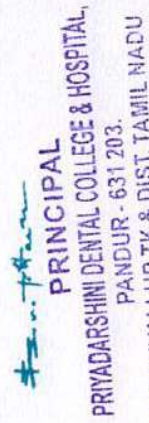 PRINCIPAL
PRIYADARSHINI DENTAL COLLEGE & HOSPITAL,
PANDUR - 631 203.
TK & DIST TAMIL NADU